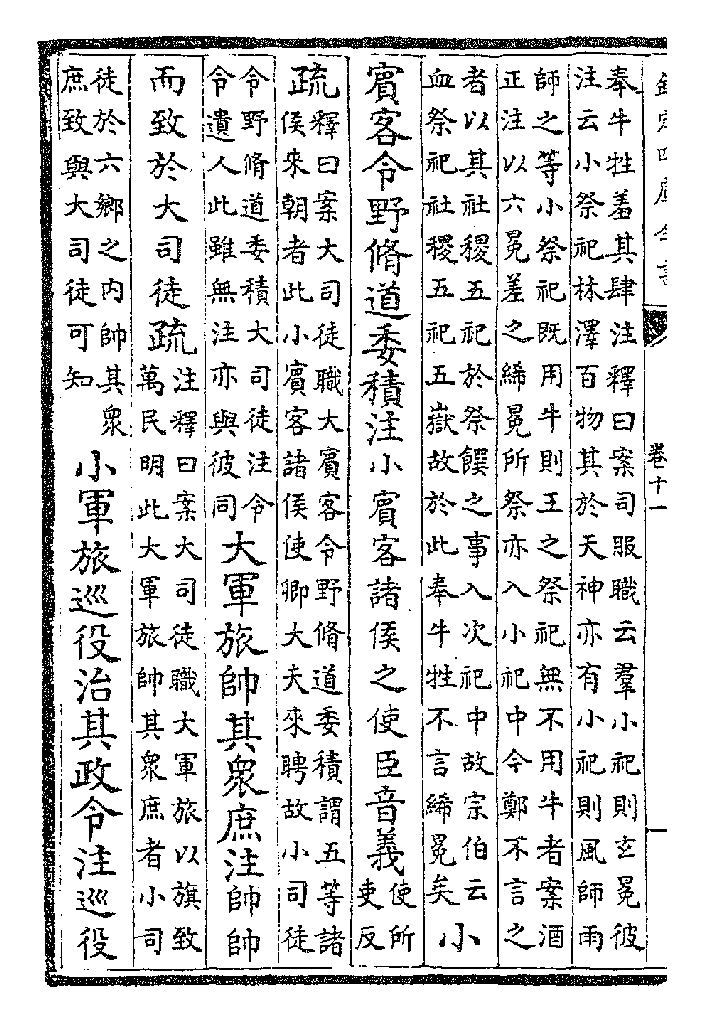 欽定四庫全書
卷十一
奉牛牲羞其肆注釋曰案司服職云羣小祀則玄冕彼
注云小祭祀林澤百物其於天神亦有小祀則風師雨
師之等小祭祀既用牛則王之祭祀無不用牛者案酒
正注以六冕差之絺冕所祭亦入小祀中今鄭不言之
者以其社稷五祀於祭饌之事入次祀中故宗伯云
血祭祀社稷五祀五嶽故於此奉牛牲不言絺冕矣
小
賓客令野脩道委積注小賓客諸侯之使臣音義
使所
吏反
疏
釋曰案大司徒職大賓客令野脩道委積謂五等諸
侯來朝者此小賓客諸侯使卿大夫來聘故小司徒
令野脩道委積大司徒注令
令遺人此雖無注亦與彼同
大軍旅帥其衆庶注帥帥
而致於大司徒疏
注釋曰案大司徒職大軍旅以旗致
萬民明此大軍旅帥其衆庶者小司
徒於六鄉之内帥其衆
庶致與大司徒可知
小軍旅巡役治其政令注巡役